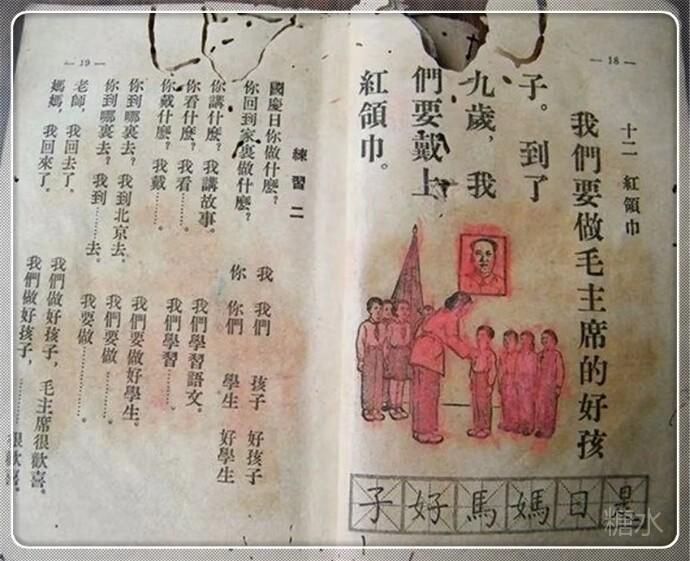 — 18 —
十二 紅領巾
我們要做毛主席的好孩
子。到了
九歲，我
們要戴上
紅領巾。
是日媽馬好子
— 19 —
練習二
國慶日你做什麼？
你回到家裏做什麼？
你講什麼？我講故事。
你看什麼？我看………。
你戴什麼？我戴………。
你到哪裏去？我到北京去。
你到哪裏去？我到………去。
老師，我回去了。
媽媽，我回來了。
我 我們 孩子 好孩子
你 你們 學生 好學生
我們學習語文。
我們學習…………。
我們要做好學生。
我們要做…………。
我要做…………。
我們做好孩子，毛主席很歡喜。
我們做好孩子，…………很歡喜。
糖水